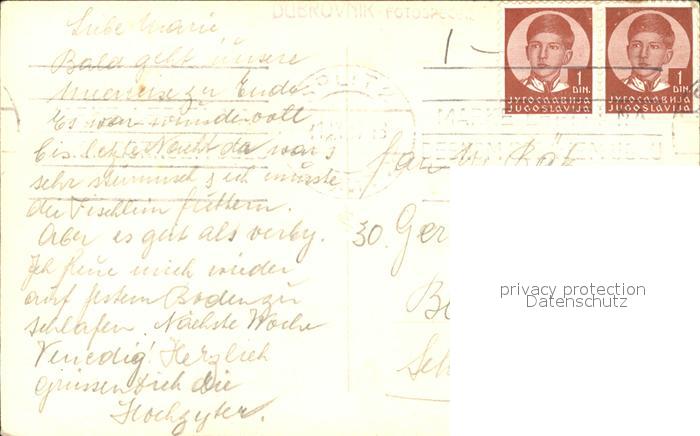 DUBROVNIK - FOTOSP
Liebe Marie
Bald geht unsere
zu Ende.
Es war wundervoll
bis letzte Nacht da war's
sehr stürmisch & ich musste
die Fischlein füttern.
Aber es geht als verby.
Ich freue mich wieder
auf festem Boden zu
schlafen. Nächste Woche
Venedig! Herzlich
grüssen Dich die
Hochzyter.
SPLIT
1 DIN. 1 DIN.
ЈУГОСЛАВИЈА ЈУГОСЛАВИЈА
JUGOSLAVIJA JUGOSLAVIJA
1 -
30. Ger
privacy protection
Datenschutz